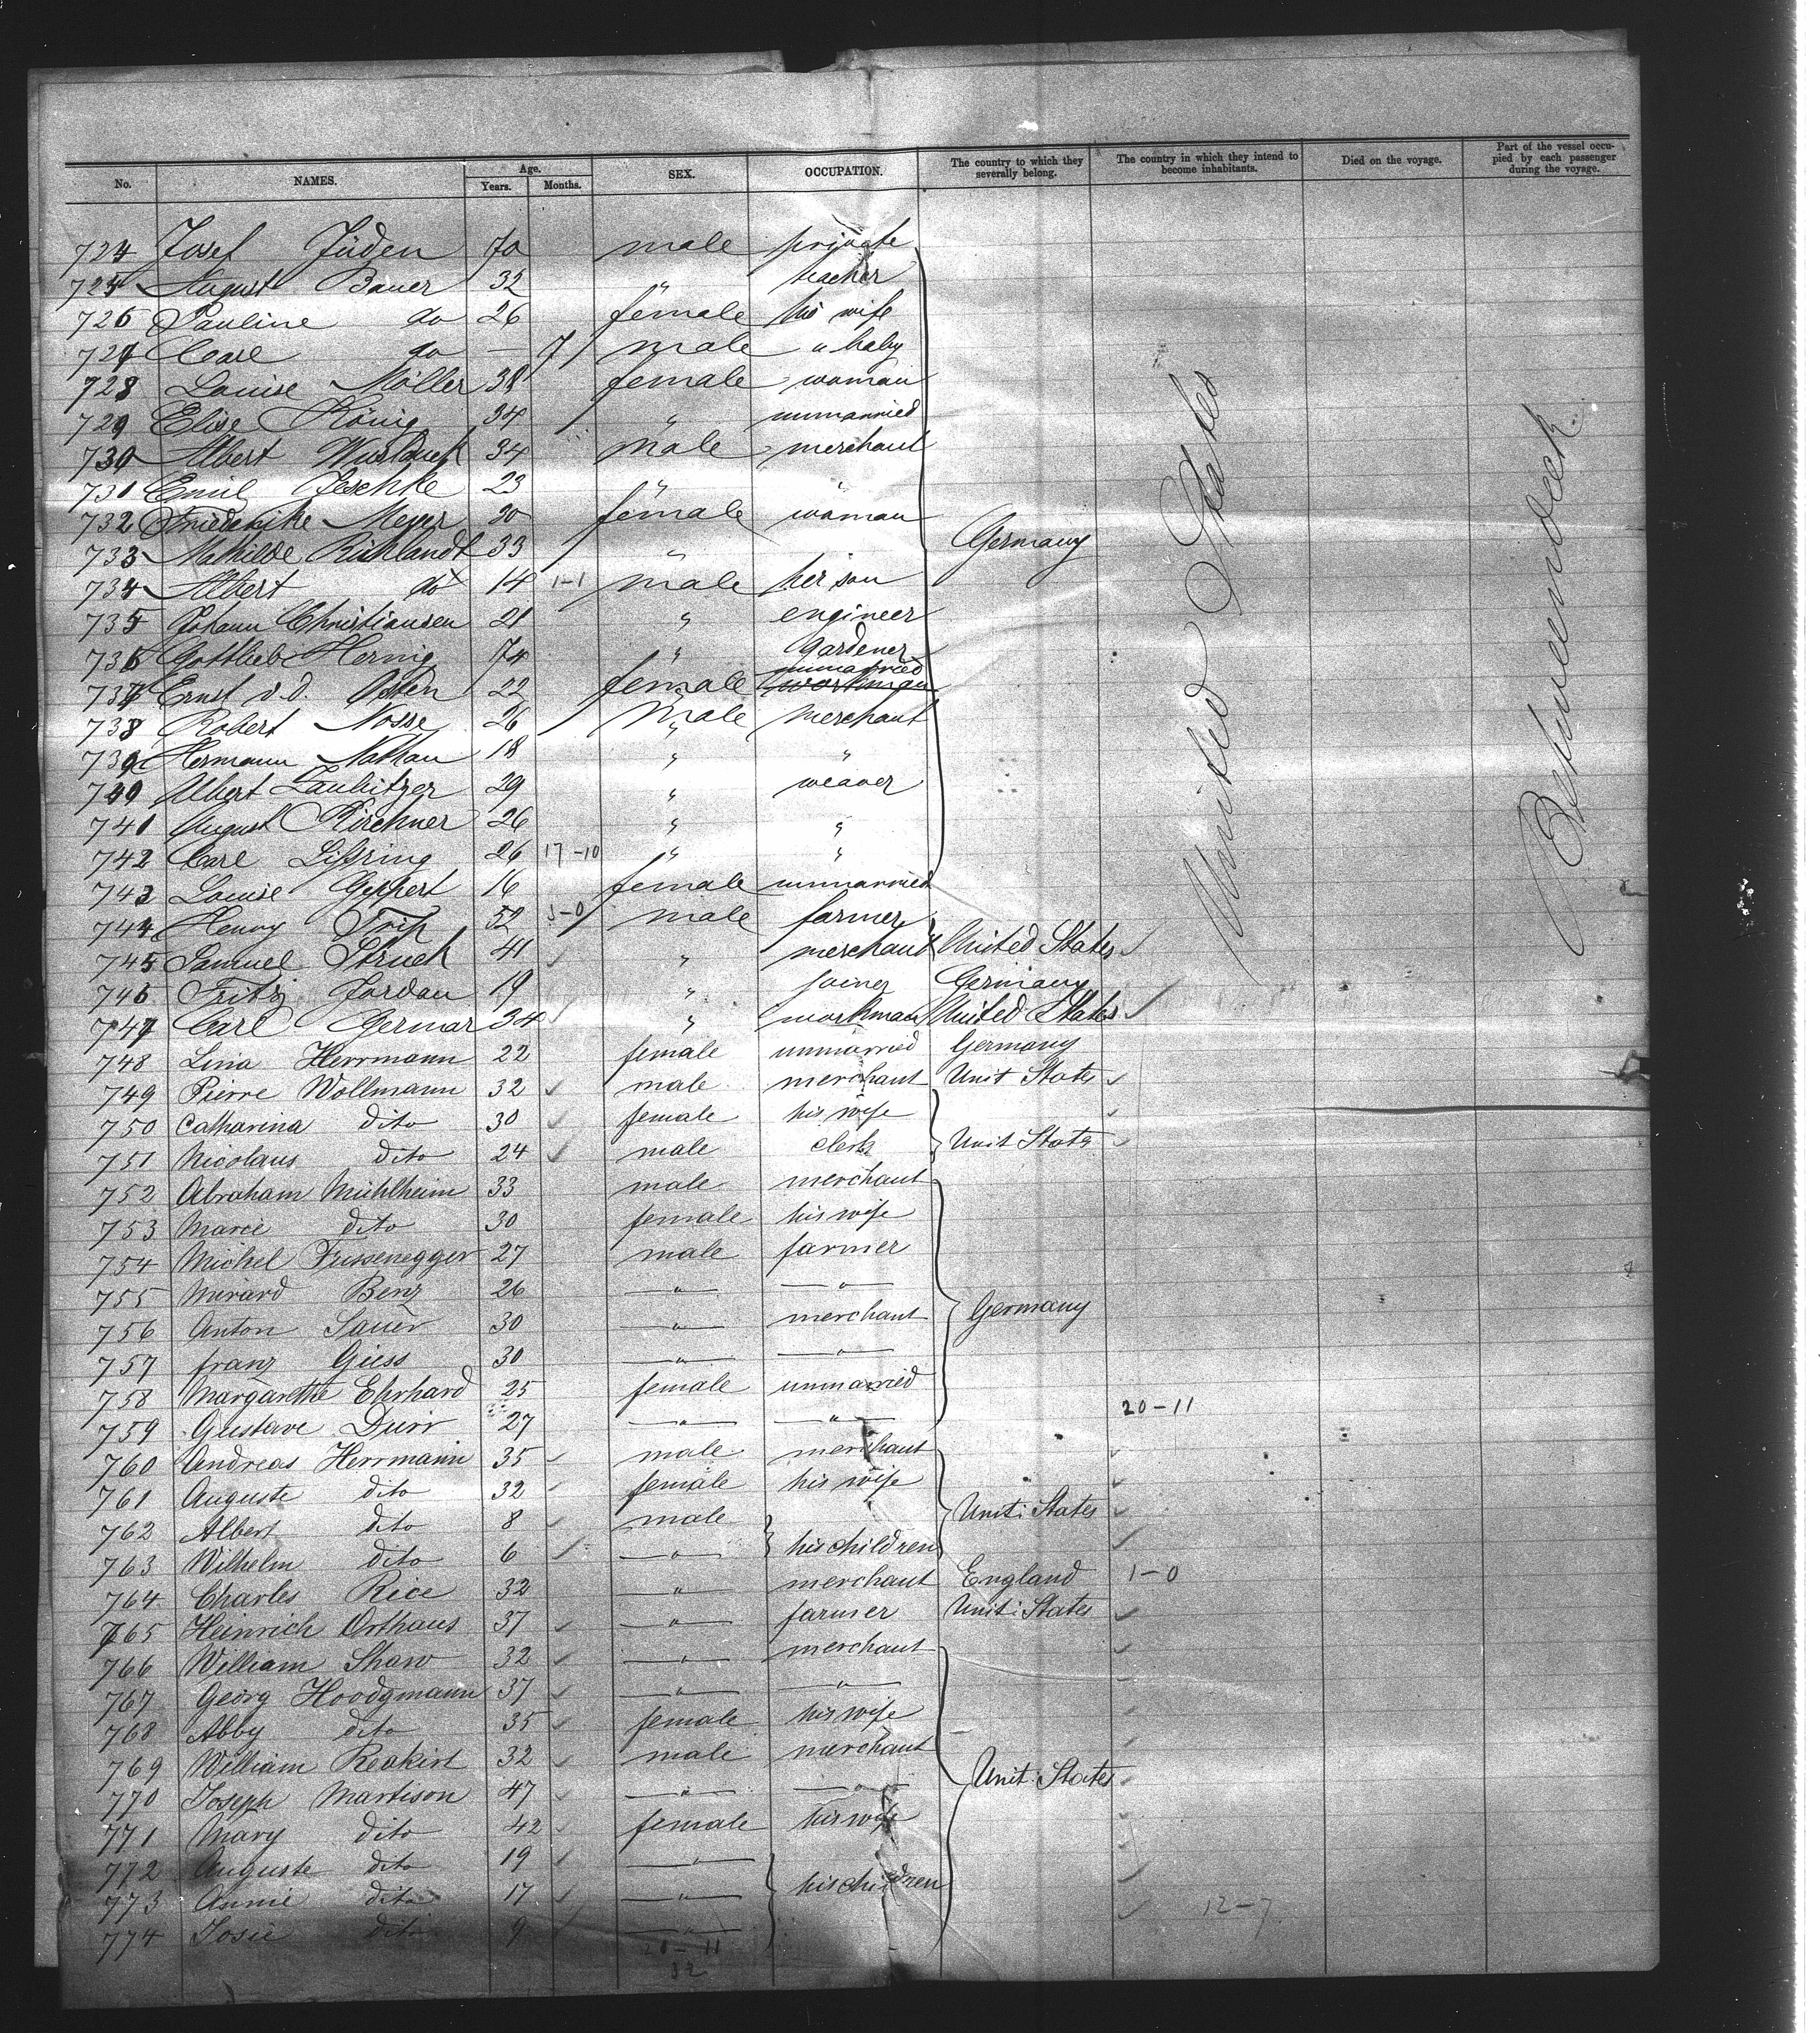 No. NAMES. Age. Years. Months. SEX. OCCUPATION. The country to which they severally belong. The country in which they intend to become inhabitants. Died on the voyage. Part of the vessel occupied by each passenger during the voyage.
724 Josef Jüden 70 male private
725 August Bauer 32 " teacher
726 Pauline do 26 female his wife
727 Carl do — 7 male " baby
728 Louise Möller 38 female woman
729 Elise König 34 " unmarried
730 Albert 34 male merchant
731 Emil Jeschke 23 " "
732 Friederike Meyer 20 female woman
733 Mathilde Richlandt 33 " Germany
734 Albert do 14 1-1 male her son
735 Johann Christiansen 21 " engineer
736 Gottlieb Hernig 74 " gardener
737 Ernst v. d. Osten 22 female unmarried workman
738 Robert Nosse 26 male merchant
739 Hermann Nathan 18 " "
740 Albert Laubitzer 29 " weaver
741 August Kirchner 26 " "
742 Carl 26 17-10 " "
743 Louise Gephert 16 female unmarried
744 Henry Trip 52 3-0 male farmer
745 Samuel Struck 41 " merchant United States
746 Fritz Jordan 19 " joiner Germany
747 Carl Germar 34 " workman United States
748 Lina Herrmann 22 female unmarried Germany
749 Pierre Wollmann 32 male merchant Unit States
750 Catharina dito 30 female his wife
751 Nicolaus dito 24 male clerk Unit States
752 Abraham Mühlheim 33 male merchant
753 Marie dito 30 female his wife
754 Michel Fussenegger 27 male farmer
755 Mirard Benz 26 " "
756 Anton Sauer 30 " merchant Germany
757 franz Giess 30 " "
758 Margarethe Ehrhard 25 female unmarried
759 Gustave Durr 27 " " 20-11
760 Andreas Herrmann 35 male merchant
761 Auguste dito 32 female his wife
762 Albert dito 8 male Unit: States
763 Wilhelm dito 6 " his children
764 Charles Rice 32 " merchant England 1-0
765 Heinrich Orthaus 37 " farmer Unit: States
766 William Shaw 32 " merchant
767 Georg Hoodgmann 37 " "
768 Abby dito 35 female his wife
769 William Reakirt 32 male merchant
770 Joseph Martison 47 " " Unit: States
771 Mary dito 42 female his wife
772 Auguste dito 19 "
773 Annie dito 17 " his children 12-7
774 Josie dito 9 "
20-11
32
United States
Between deck.